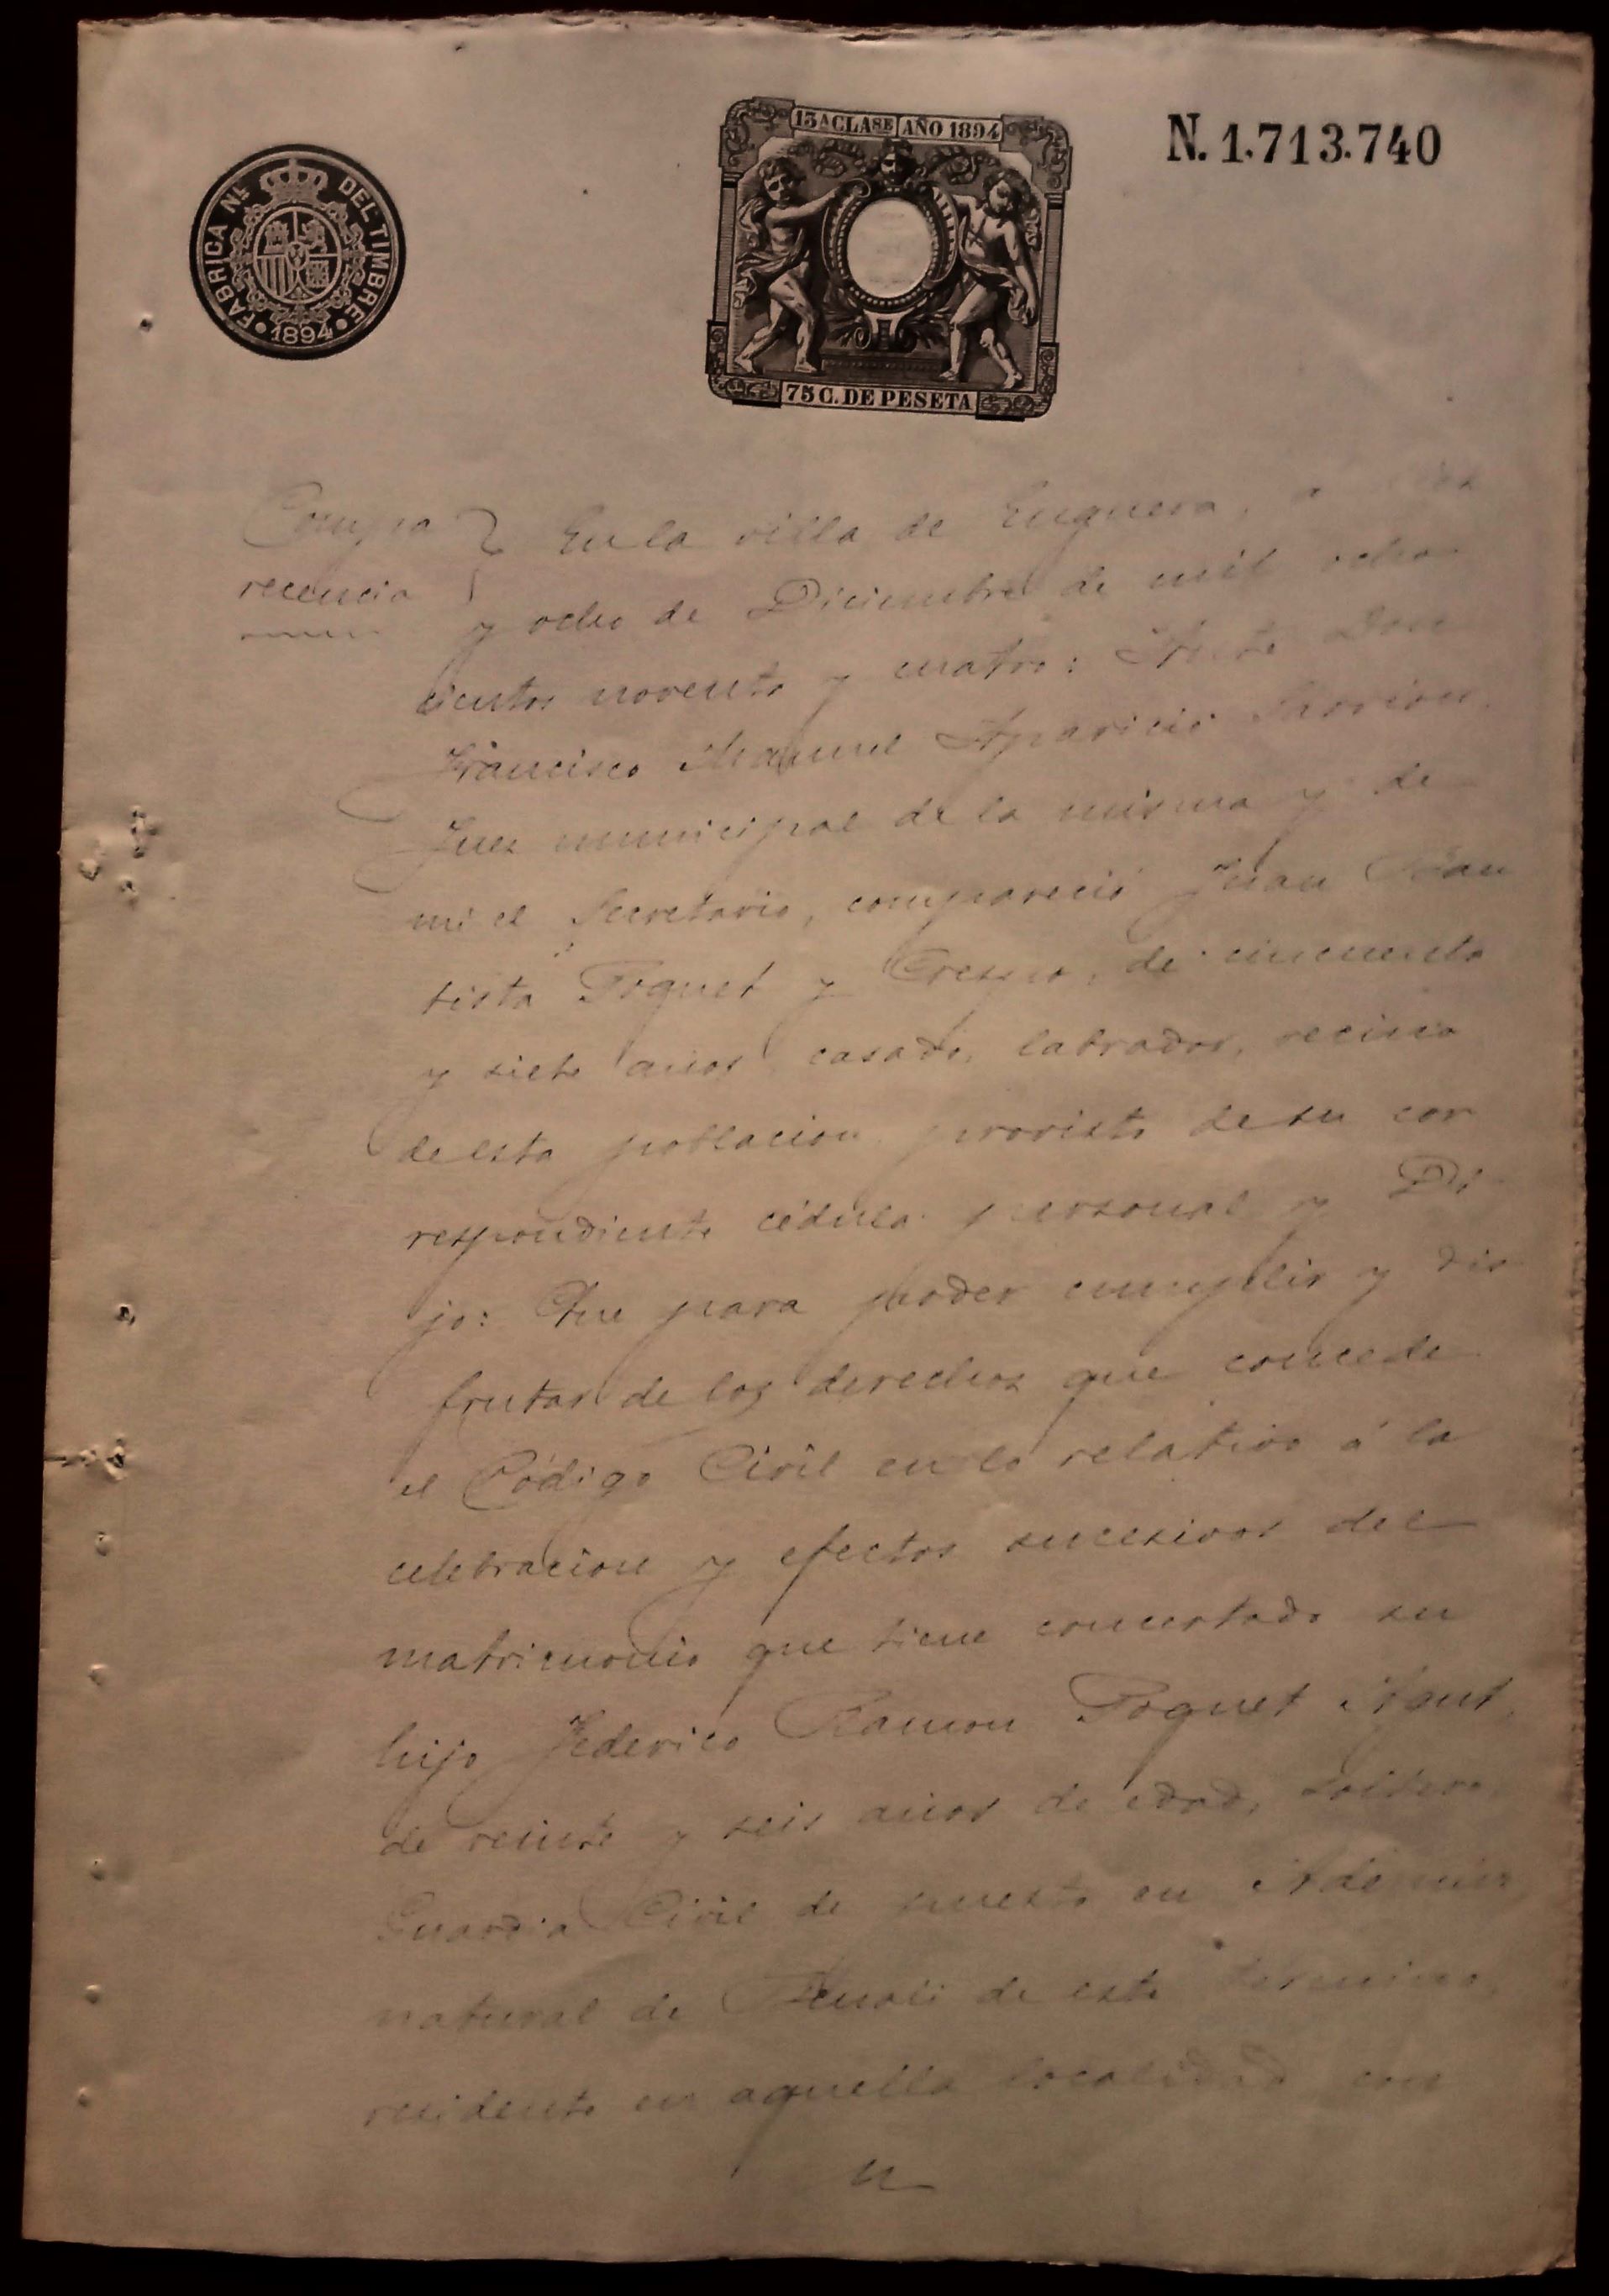 FABRICA NL DEL TIMBRE
1894
13A CLASE AÑO 1894
75 C. DE PESETA
N. 1.713.740
Compa
recencia
En la villa de Enguera, a diez
y ocho de Diciembre de mil ocho
cientos noventa y cuatro: Ante Don
Francisco Manuel Aparicio Sarrion,
Juez municipal de la misma y de
mi el Secretario, compareció Juan Bau
tista Poquet y Crespo, de cincuenta
y siete años, casado, labrador, vecino
de esta poblacion, provisto de su cor
respondiente cédula personal y Di
jo: Que para poder cumplir y dis
frutar de los derechos que concede
el Código Civil en lo relativo á la
celebracion y efectos sucesivos del
matrimonio que tiene concertado su
hijo Federico Ramon Poquet
de veinte y seis años de edad, soltero,
Guardia Civil de puesto en
natural de de este termino,
residente en aquella localidad con